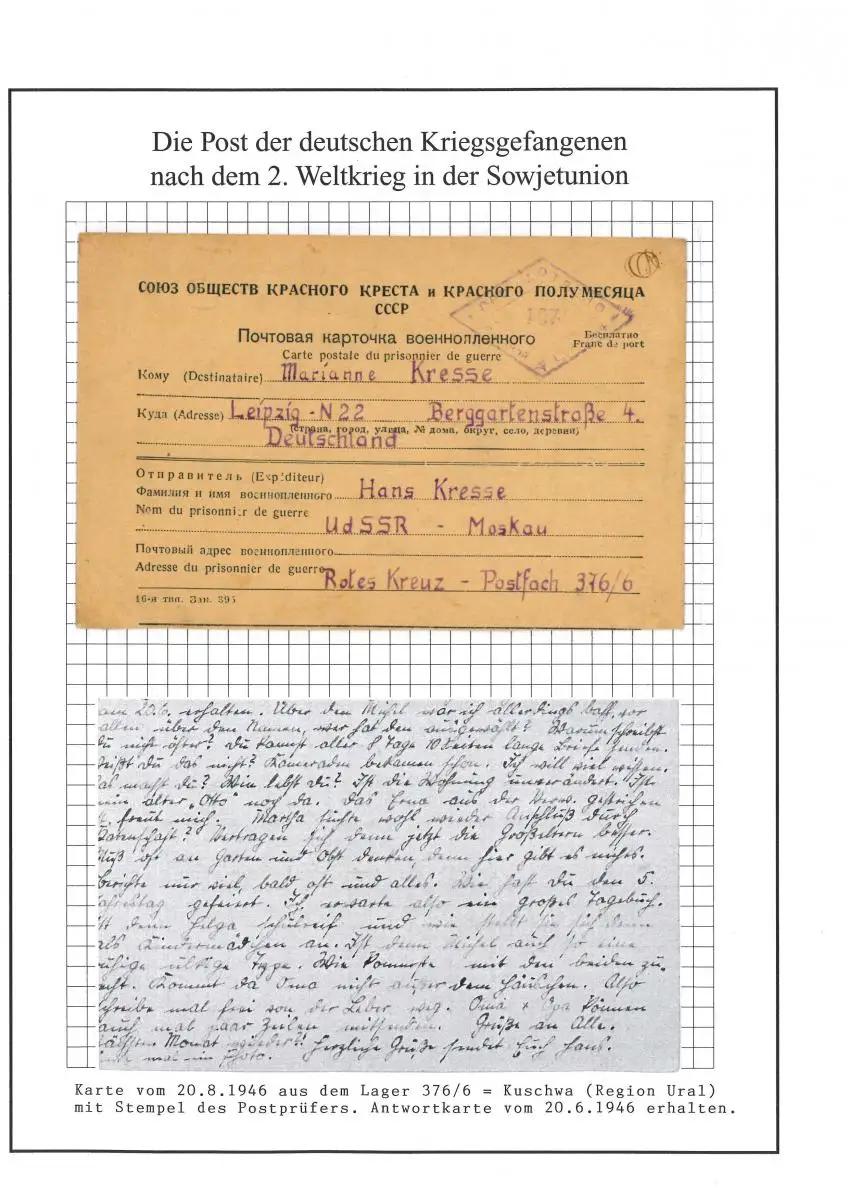 Die Post der deutschen Kriegsgefangenen
nach dem 2. Weltkrieg in der Sowjetunion
СОЮЗ ОБЩЕСТВ КРАСНОГО КРЕСТА и КРАСНОГО ПОЛУМЕСЯЦА
СССР
Почтовая карточка военнопленного
Бесплатно
Franc de port
Carte postale du prisonnier de guerre
Кому (Destinataire) Marianne Kresse
Куда (Adresse) Leipzig - N 22 Berggartenstraße 4.
(страна, город, улица, № дома, округ, село, деревня)
Deutschland
Отправитель (Expéditeur)
Фамилия и имя военнопленного Hans Kresse
Nom du prisonnier de guerre
UdSSR - Moskau
Почтовый адрес военнопленного
Adresse du prisonnier de guerre Rotes Kreuz - Postfach 376/6
16-я тип. Зак. 395
am 20.6. erhalten. Über den Michel war ich allerdings baff, vor
allem über den Namen, wer hat den ausgewählt? Warum schreibst
du nicht öfter? Du kannst aller 8 Tage 10 Zeiten lange Briefe senden.
Weißt du das nicht? Kameraden bekamen schon. Ich will viel wissen.
Was machst du? Wie lebst Du? Ist die Wohnung unverändert. Ist
mein alter „Otto" noch da. Das Erna aus der Verw. gestrichen
freut mich. Martha suchte wohl wieder Anschluß durch
Vertragen sich denn jetzt die Großeltern besser.
Muß oft an Garten und Obst denken, denn hier gibt es nichts.
Berichte nur viel, bald, oft und alles. Wie hast Du den 5.
Jahrestag gefeiert. Ich erwarte also ein großes Tagebuch.
Ist denn Helga schulreif und wie stellt sie sich denn
als Kindermädchen an. Ist denn Michel auch so eine
ruhige ulkige Type. Wie kommste mit den beiden zu-
recht. Kommt da Oma nicht außer dem Häuschen. Also
schreibe mal frei von der Leber weg. Oma + Opa können
auch mal paar Zeilen mitsenden. Grüße an Alle.
Nächsten Monat wieder?! Herzliche Grüße sendet Euch Hans.
mal ein Photo.
Karte vom 20.8.1946 aus dem Lager 376/6 = Kuschwa (Region Ural)
mit Stempel des Postprüfers. Antwortkarte vom 20.6.1946 erhalten.